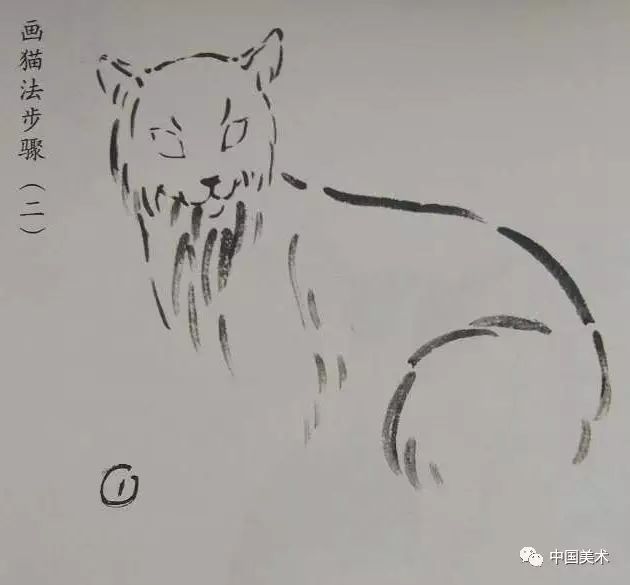 画猫法步骤（二）
①
中国美术